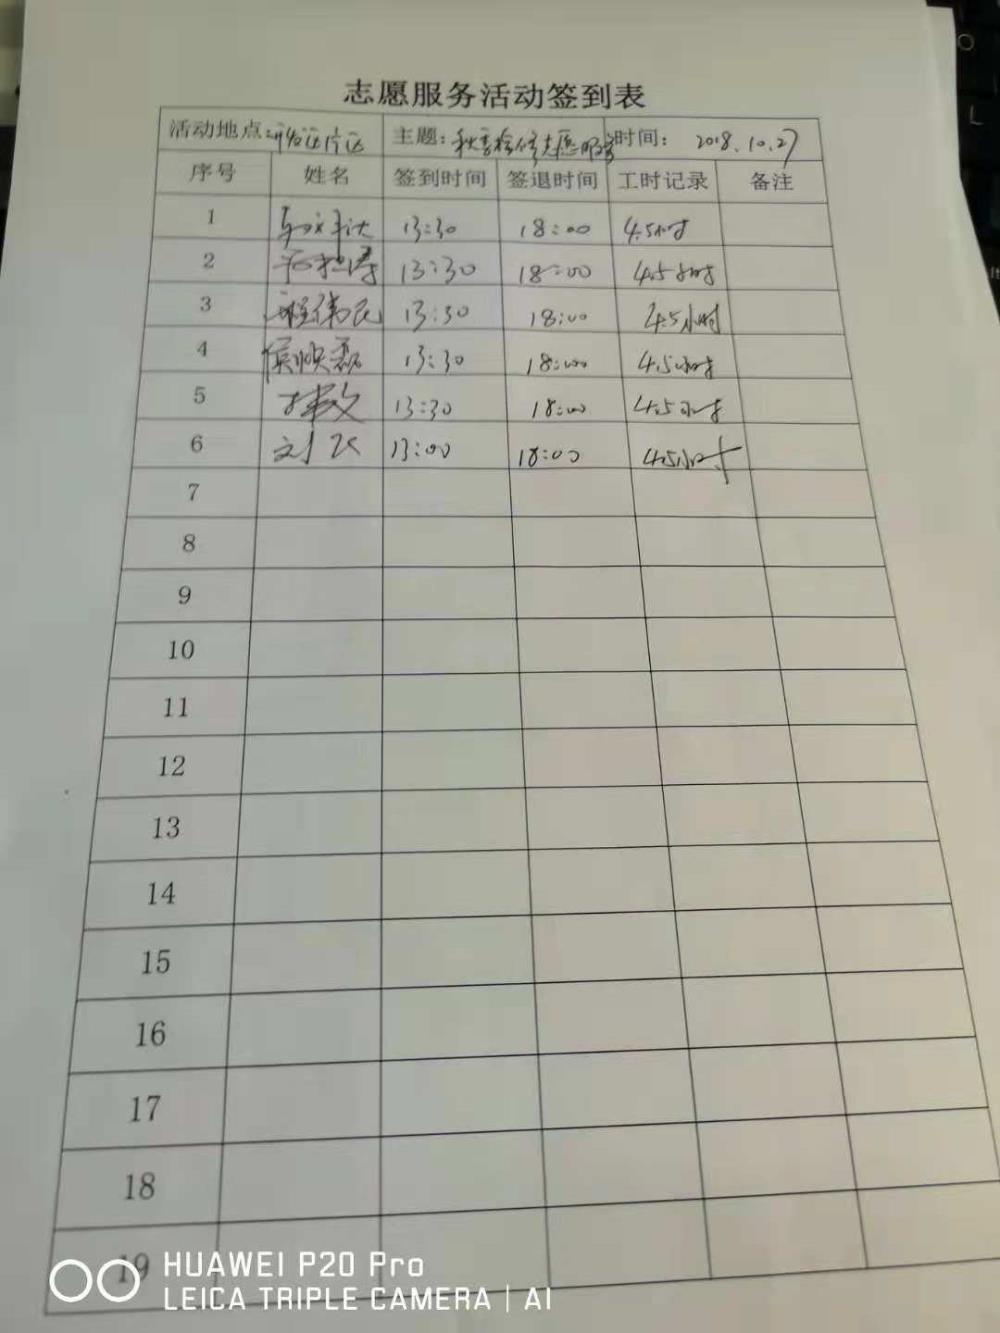 志愿服务活动签到表
活动地点: 主题: 秋季检修志愿服务 时间: 2018.10.27
序号 姓名 签到时间 签退时间 工时记录 备注
1 13:30 18:00 4.5小时
2 13:30 18:00 4.5小时
3 程伟民 13:30 18:00 4.5小时
4 侯顺磊 13:30 18:00 4.5小时
5 13:30 18:00 4.5小时
6 刘飞 13:00 18:00 4.5小时
7
8
9
10
11
12
13
14
15
16
17
18
19
HUAWEI P20 Pro
LEICA TRIPLE CAMERA | AI